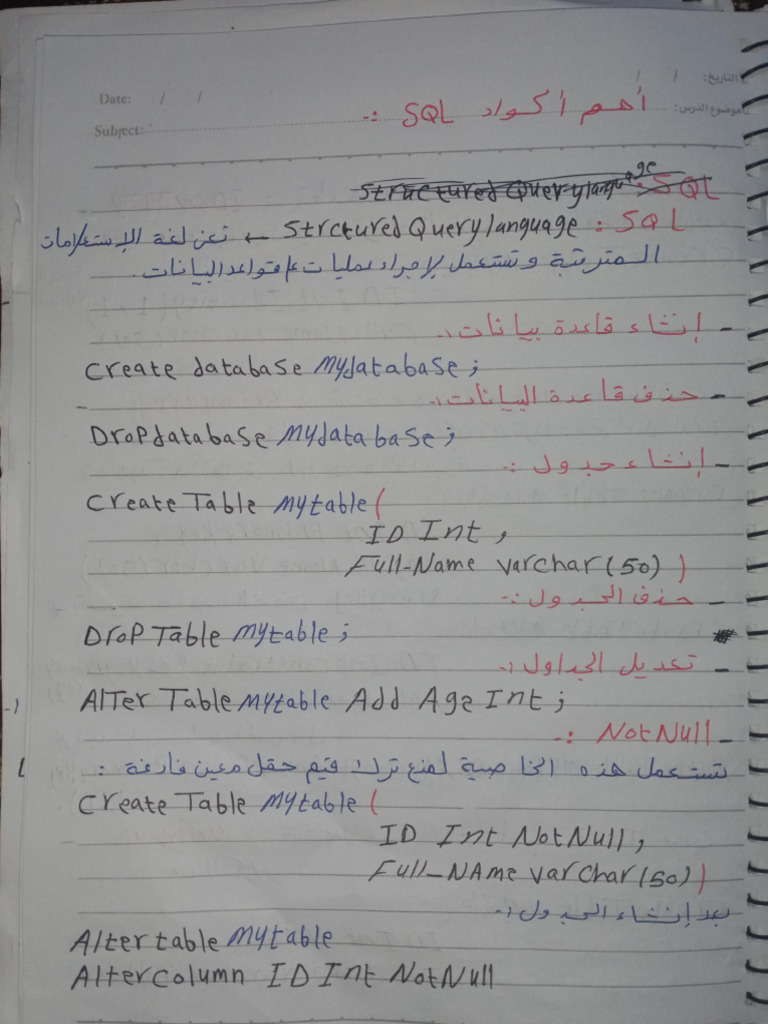 التاريخ: / /
Date: / /
موضوع الدرس: أهم أكواد SQL :-
Subject:
SQL : Structured Query language
SQL : Strctured Query language ← تعن لغة الإستعلامات
المترتبة وتستعمل لإجراء عمليات ع قواعد البيانات.
- إنشاء قاعدة بيانات :-
Create database Mydatabase ;
- حذف قاعدة البيانات :-
Drop database Mydatabase ;
- إنشاء جدول :-
Create Table Mytable (
ID Int ,
Full-Name varchar (50) )
- حذف الجدول :-
Drop Table Mytable ;
- تعديل الجداول :-
Alter Table Mytable Add Age Int ;
- Not Null :-
تستعمل هذه الخاصية لمنع ترك قيم حقل معين فارغة :
Create Table Mytable (
ID Int Not Null ,
Full-NAme varchar (50) )
بعد إنشاء الجدول :-
Alter table Mytable
Alter column ID Int Not Null